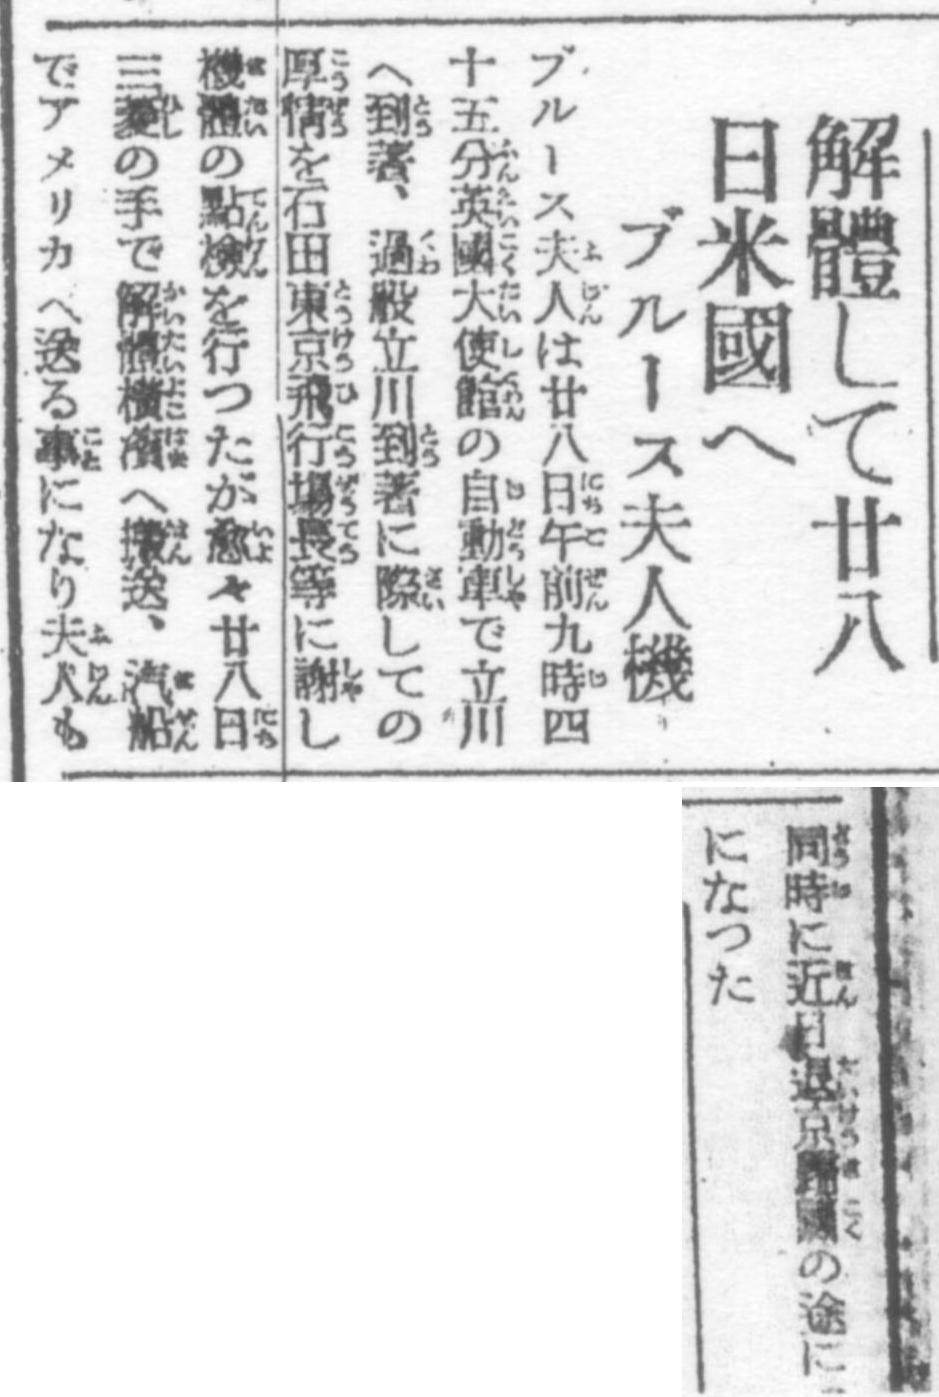 解體して廿八
日米國へ
ブルース夫人機
ブルース夫人は廿八日午前九時四
十五分英國大使館の自動車で立川
へ到著、過般立川到著に際しての
厚情を石田東京飛行場長等に謝し
機體の點檢を行つたが愈々廿八日
三菱の手で解體橫濱へ搬送、汽船
でアメリカへ送る事になり夫人も
同時に近日退京歸國の途に
になつた